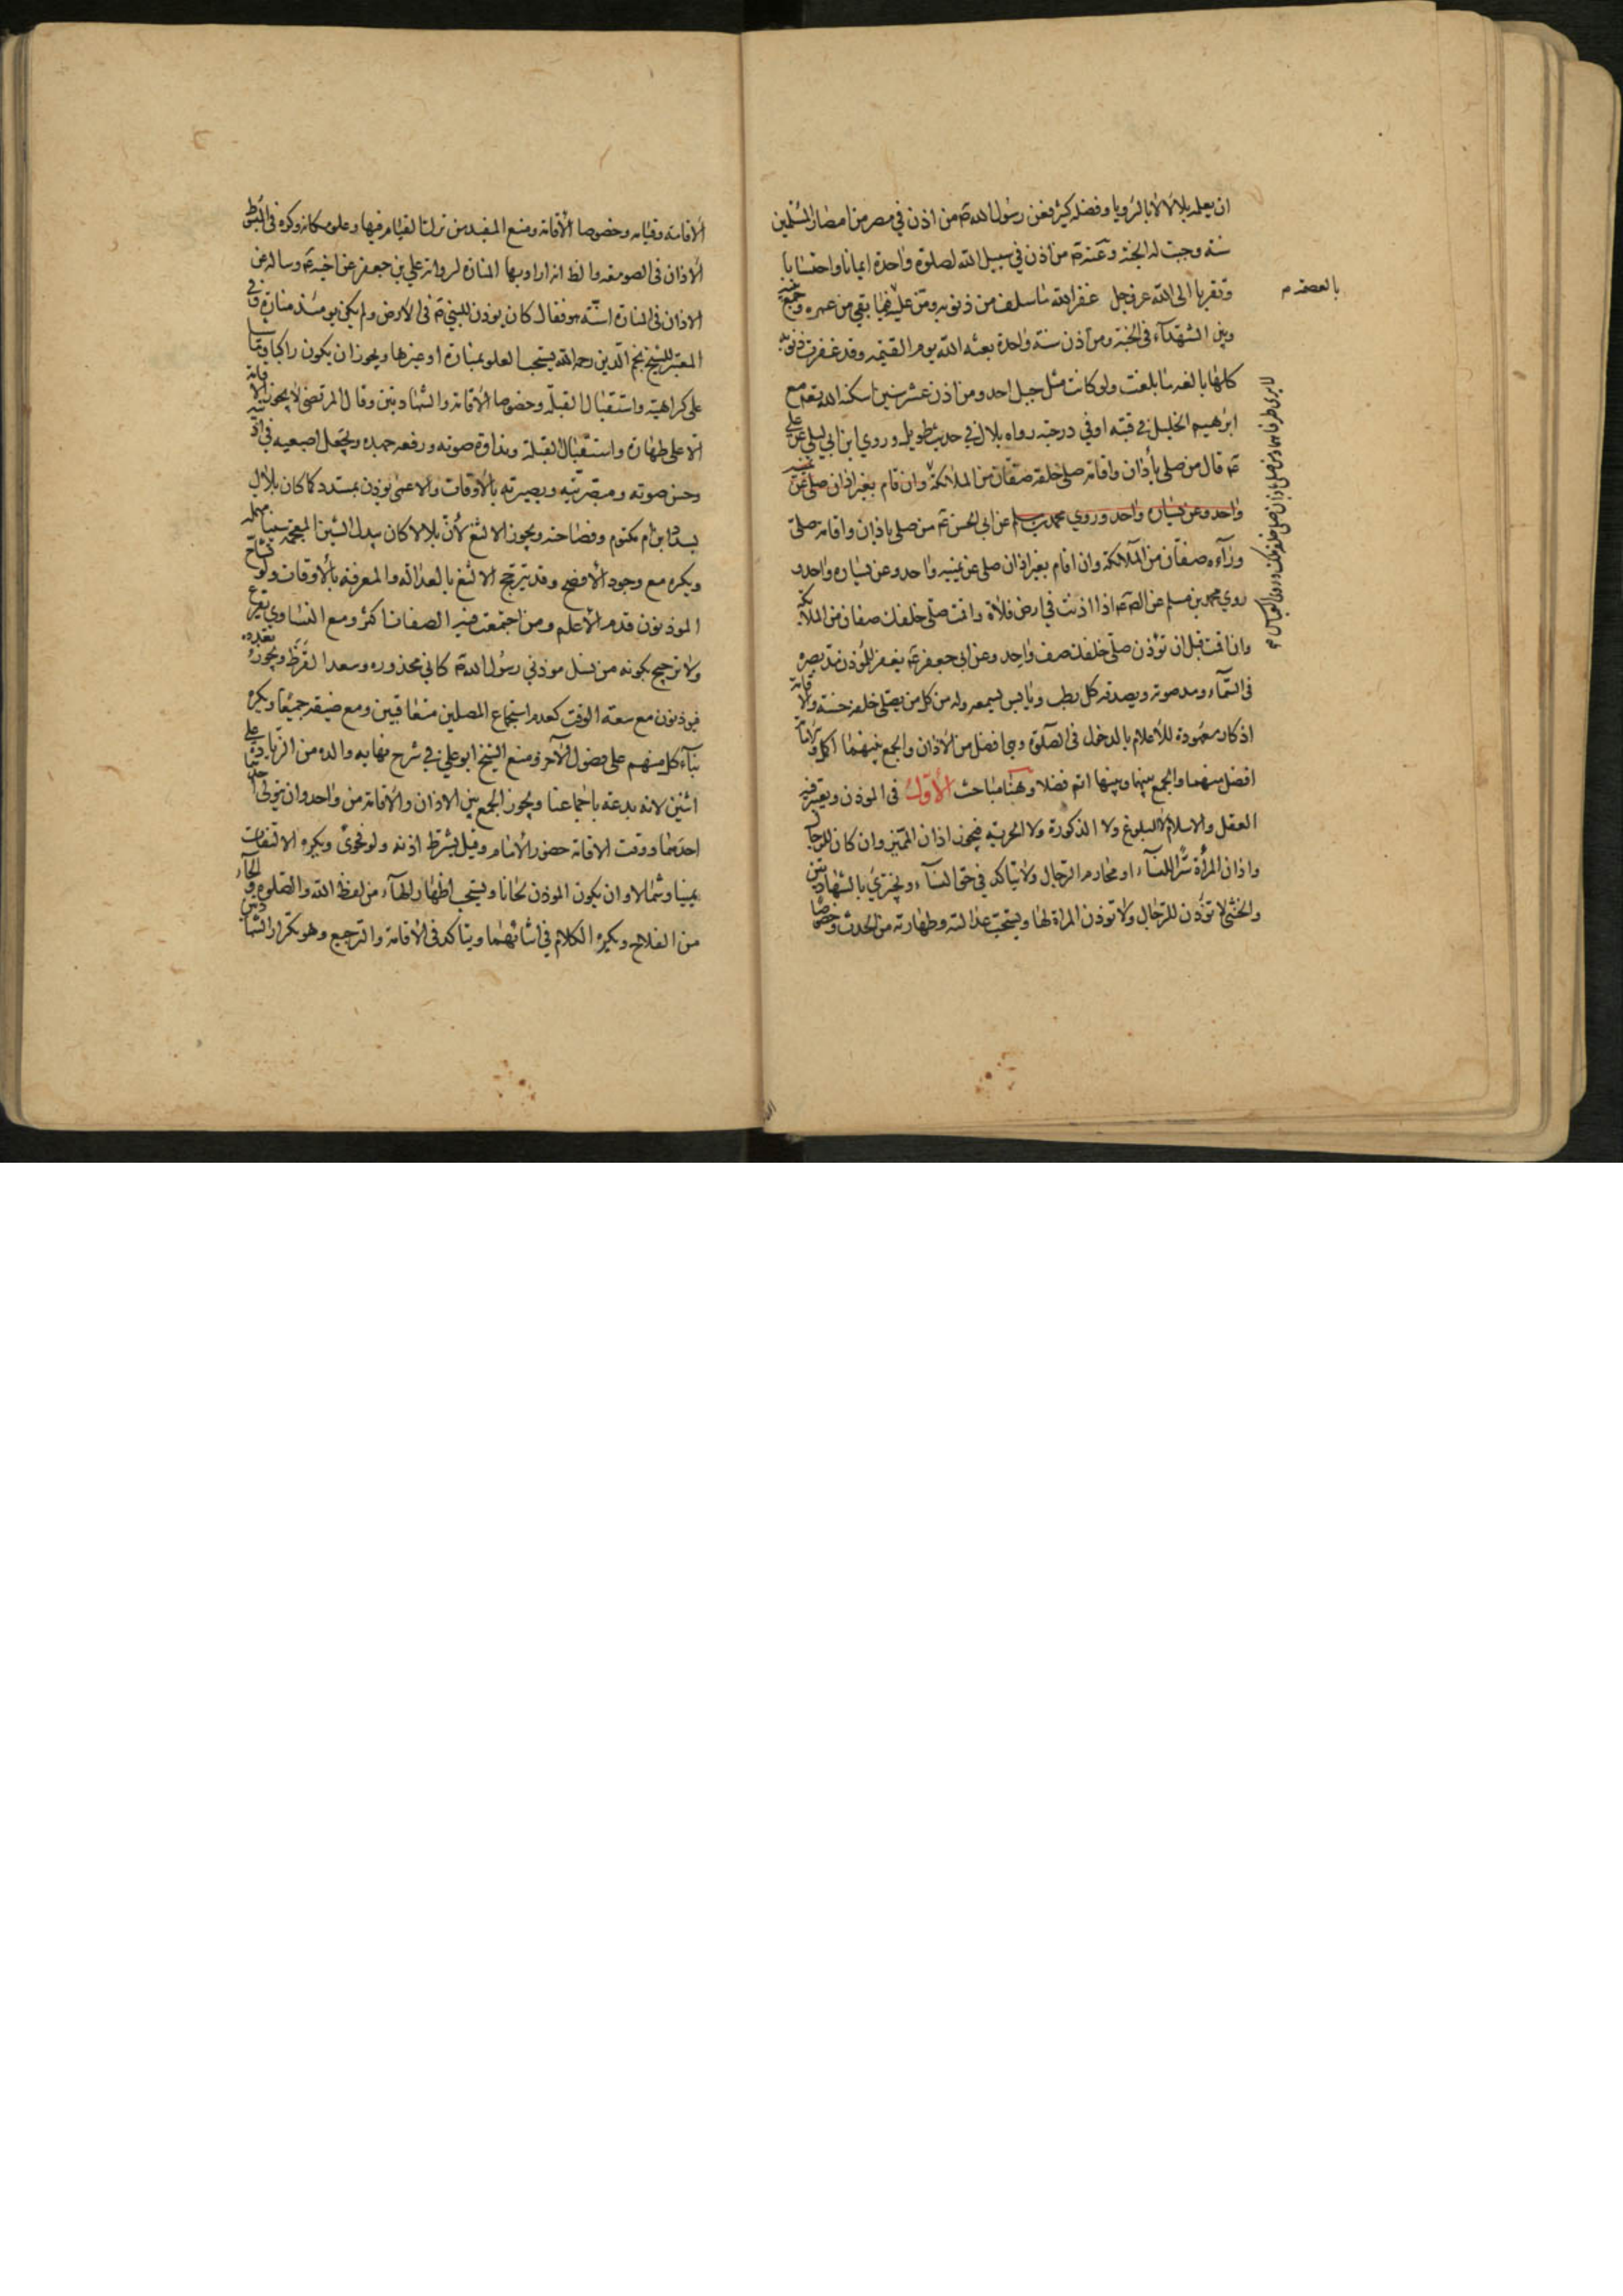 ان يعلمه بلالا لا بالرويا وفضله كثير فعن رسول الله ص من اذن في مصر من امصار المسلمين
سنة وجبت له الجنة وعنه ص من اذن في سبيل الله لصلوة واحدة ايمانا واحتسابا
وتقربا الى الله عز وجل غفر الله ما سلف من ذنوبه ومن عليه فيما بقي من عمره وجمع بينه
وبين الشهدآء في الجنة ومن اذن سنة واحدة بعثه الله يوم القيمة وقد غفرت ذنوبه
كلها بالغه ما بلغت ولو كانت مثل جبل احد ومن اذن عشر سنين اسكنه الله تع مع
ابرهيم الخليل في قبته او في درجته رواه بلال في حديث طويل وروي ابن ابي ليلى عن علي
ع قال من صلى بأذان واقامة صلى خلفه صفان من الملائكة وان قام بغير اذان صلى عن يمينه
واحد وعن يساره واحد وروي محمد بن مسلم عن ابي الحسن ع من صلى باذان واقامة صلى
ورآءه صفان من الملائكة وان اقام بغير اذان صلى عن يمينه واحد وعن يساره واحد و
روي محمد بن مسلم عن الص ع اذا اذنت في ارض فلاة واقمت صلى خلفك صفان من الملائكة
وان اقمت قبل ان تؤذن صلى خلفك صف واحد وعن ابى جعفر ع يغفر للمؤذن مد بصره
في السمآء ومد صوته ويصدقه كل رطب ويابس يسمعه وله من كل من يصلى خلفه حسنة والاقامة
اذكار معهودة للأعلام بالدخول في الصلوة وهي افضل من الاذان والجمع بينهما اكمل
افضل منهما والجمع بينها وبينها اتم فضلا وهنا مباحث الأول في الموذن ويعتبر فيه
العقل والاسلام لا البلوغ ولا الذكورة ولا الحرية فيجوز اذان المميز وان كان للرجال
واذان المرأة سرا للنسآء او محارم الرجال ولا يتأكد في حق النسآء ويجتزي بالشهادتين
والخنثى لا تؤذن للرجال ولا توذن المراة لها ويستحب عدالته وطهارته من الحدث وخصوصا
بالعصفر م
الاقامة وقيامه وخصوصا الأقامة ومنع المفيد من ترك القيام فيها وعلو مكانه وكره في المبسوط
الأذان في الصومعة والظ انه اراد بها المنارة لرواية علي بن جعفر عن اخيه ع وساله عن
الاذان في المنارة اسنة هو فقال كان يوذن للنبي ص في الارض ولم يكن يومئذ منارة وفي
المعتبر للشيخ نجم الدين رحمه الله يستحب العلو بمنارة او غيرها ويجوز ان يكون راكبا وماشيا
على كراهية واستقبال القبلة وخصوصا الأقامة والشهادتين وقال المرتضى لا يجوز الاقامة
الا على طهارة واستقبال القبلة ونداوة صوته ورفعه جهده ويجعل اصبعيه في اذنيه
وحسن صوته ومبصريته وبصيرته بالأوقات والاعمى يوذن بمسدد كما كان بلال
يسدد ابن ام مكتوم وفصاحته ويجوز الالثغ لأن بلالا كان يبدل الشين المعجمة سينا مهملة
ويكره مع وجود الأفصح وقد يترجح الالثغ بالعدالة والمعرفة بالأوقات ولو تشاح
الموذنون قدم الأعلم ومن اجتمعت فيه الصفات اكثر ومع التساوي يقرع
ولا ترجيح بكونه من نسل موذني رسول الله ص كابي محذوره وسعد القرظ ويجوز تعدده
فيوذنون مع سعة الوقت كعدم استجماع المصلين متعاقبين ومع ضيقه جميعا ويكره
بنآء كل منهم على فصول الآخر ومنع الشيخ ابو علي في شرح نهاية والده من الزيادة على
اثنين لانه بدعة باجماعنا ويجوز الجمع بين الاذان والاقامة من واحد وان يتولى
احدهما ووقت الاقامة حضور الأمام وقيل يشترط اذنه ولو فحوى ويكره الالتفات
يمينا وشمالا وان يكون الموذن لحانا ويستحب اظهار الهآء من لفظ الله والصلوة والحآء
من الفلاح ويكره الكلام في اثنائهما ويتاكد في الأقامة والترجيع وهو تكرار الشهادتين